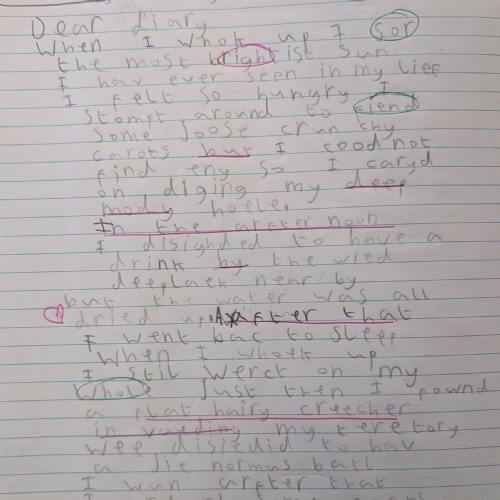 Dear diary
When I whok up I sor
the most brightist sun
I hav ever seen in my lief
I felt so hungry I
stompt around to fiend
some joose crunchy
carots but I cood not
find eny so I caryd
on diging my deep
mody holle.
In the arfter noon
I disighded to have a
drink by the wied
deeplack near by
but the water was all
dried up. After that
I went bac to sleep
When I whoek up
I stil werct on my
whole Just then I fownd
a flat hairy creecher
in vading my teretory
wee disiedid to hav
a Jie normus batl
I wun arfter that